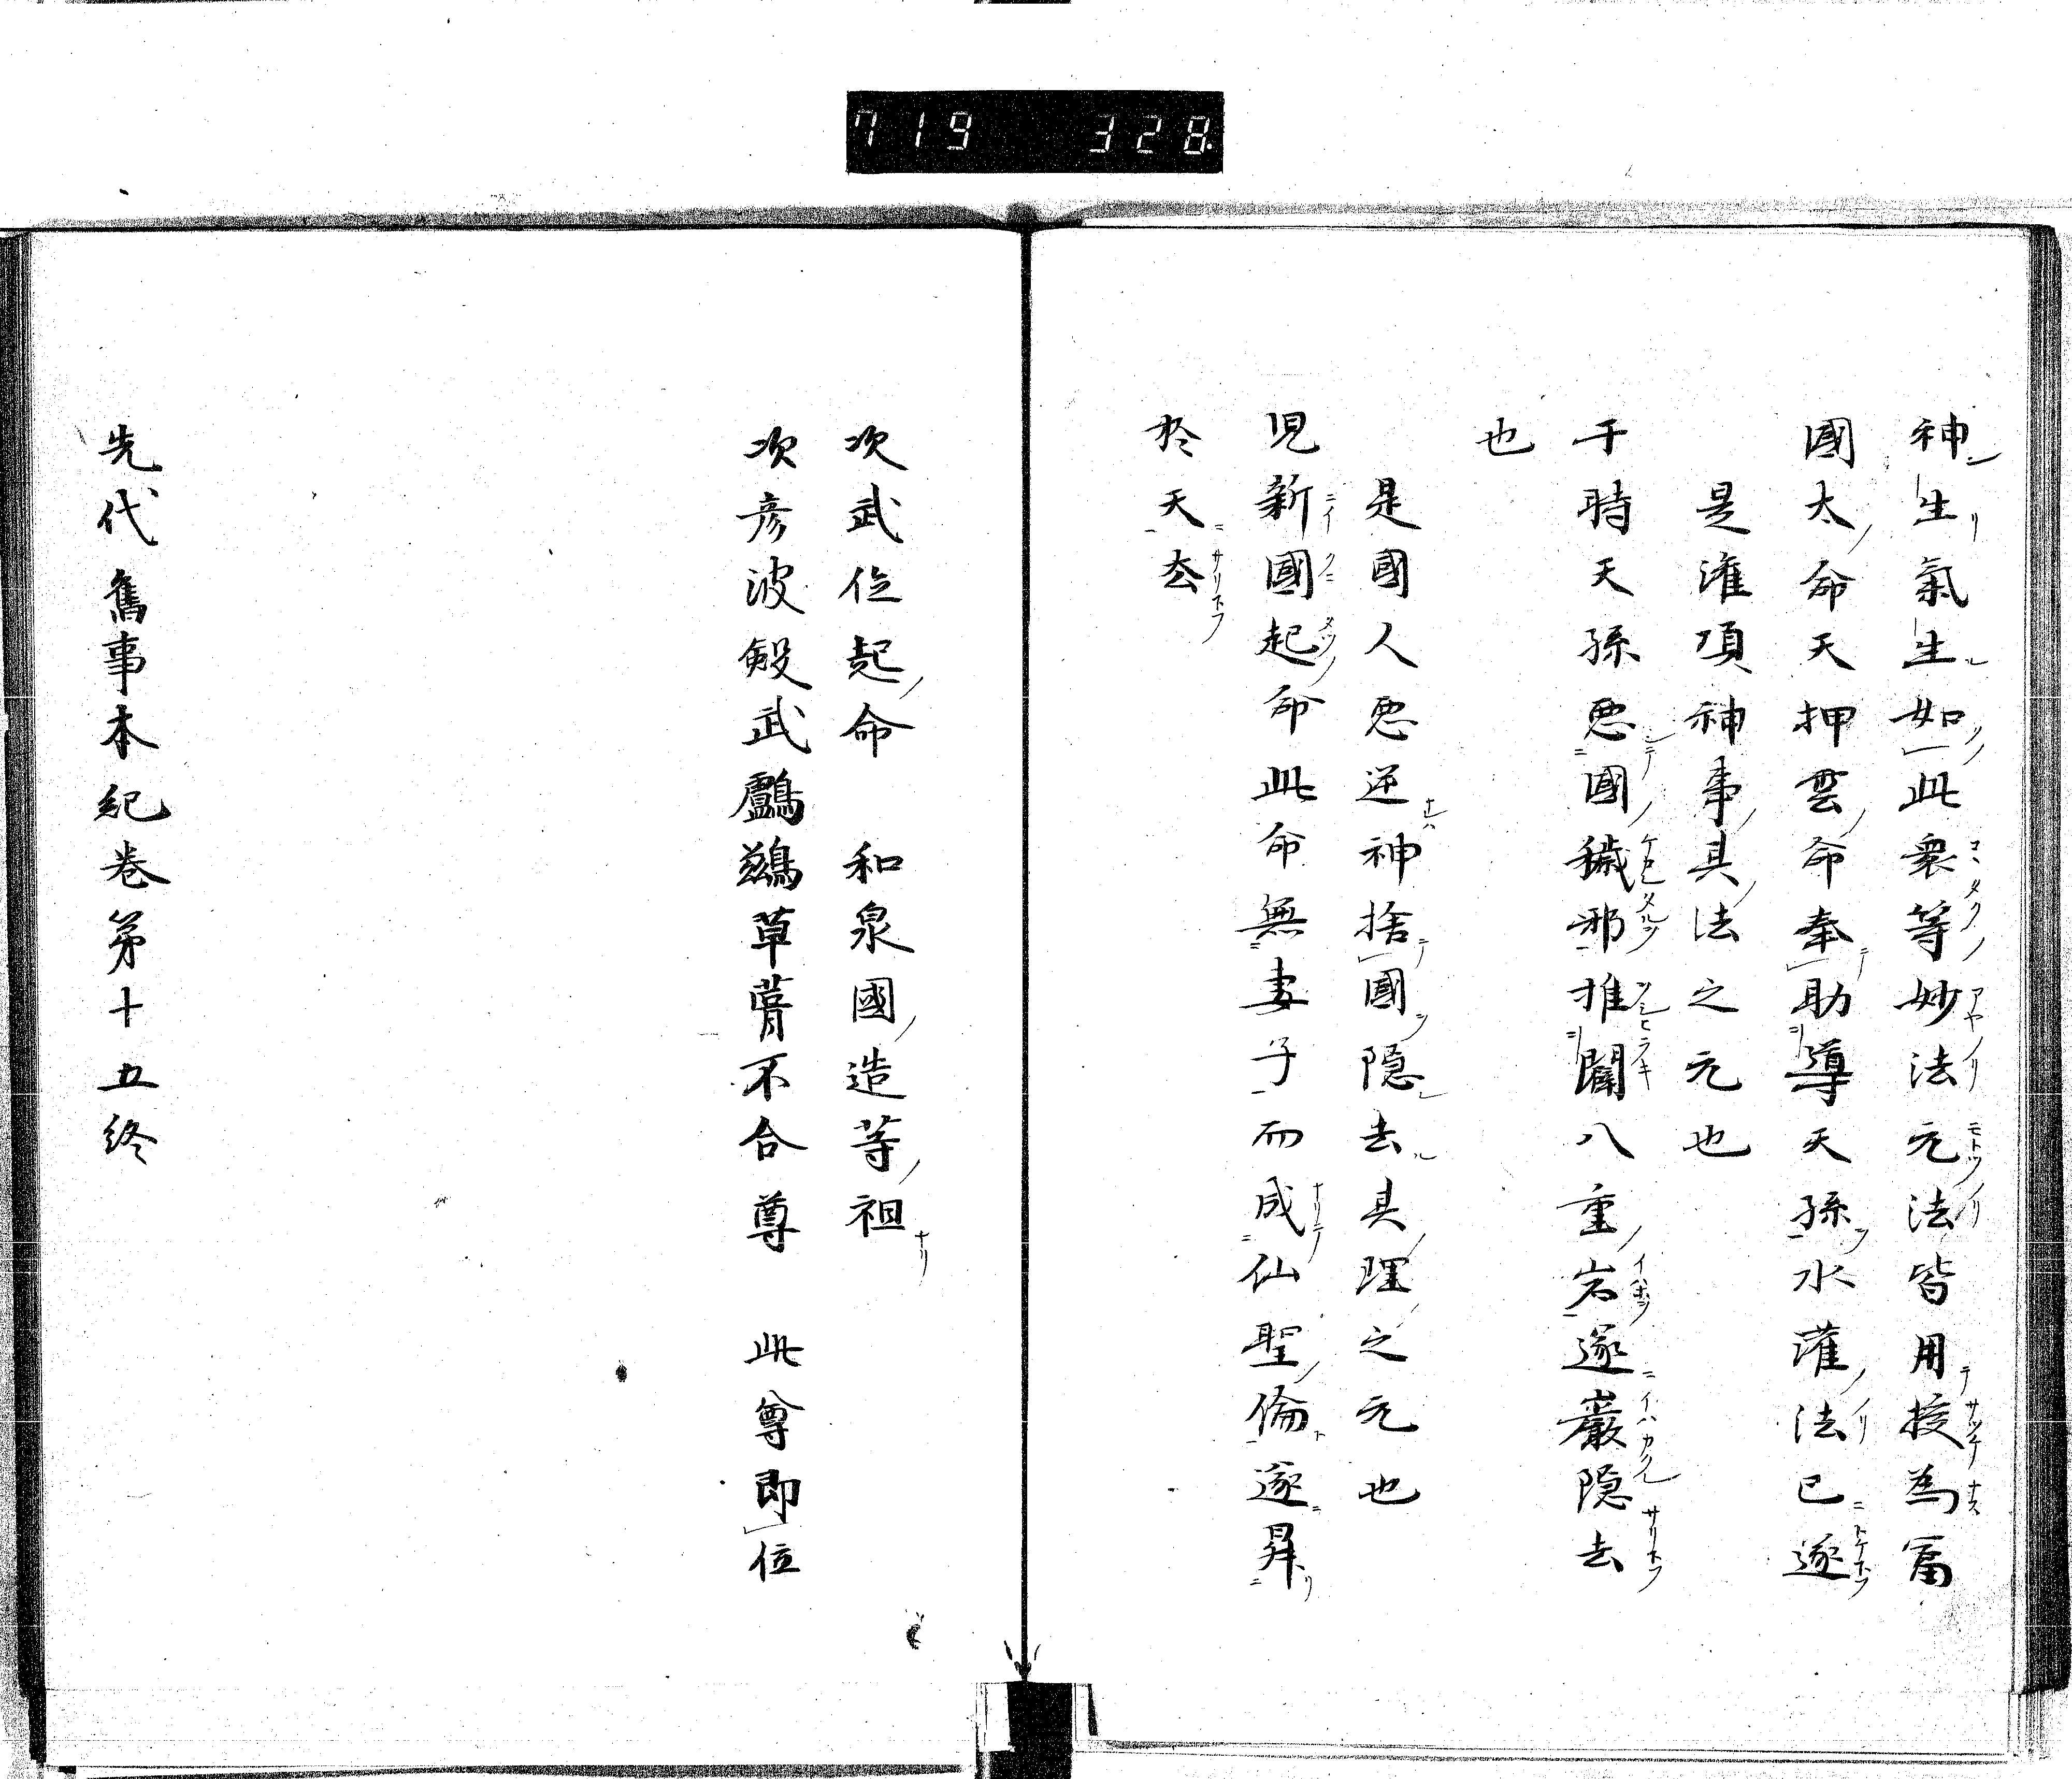 719 328
神生氣生如此衆等妙法元法皆用授為富
國太命天押雲命奉助導天孫水灌法已遂
是灌頂神事具法之元也
于時天孫悪國穢邪推闢八重岩遂巖隠去
也
是國人悪逆神捨國隠去具理之元也
児新國起命此命無妻子而成仙聖倫遂昇
於天去
次武位起命 和泉國造等祖
次彦波殿武鸕鷀草葺不合尊 此尊即位
先代舊事本紀卷第十五終